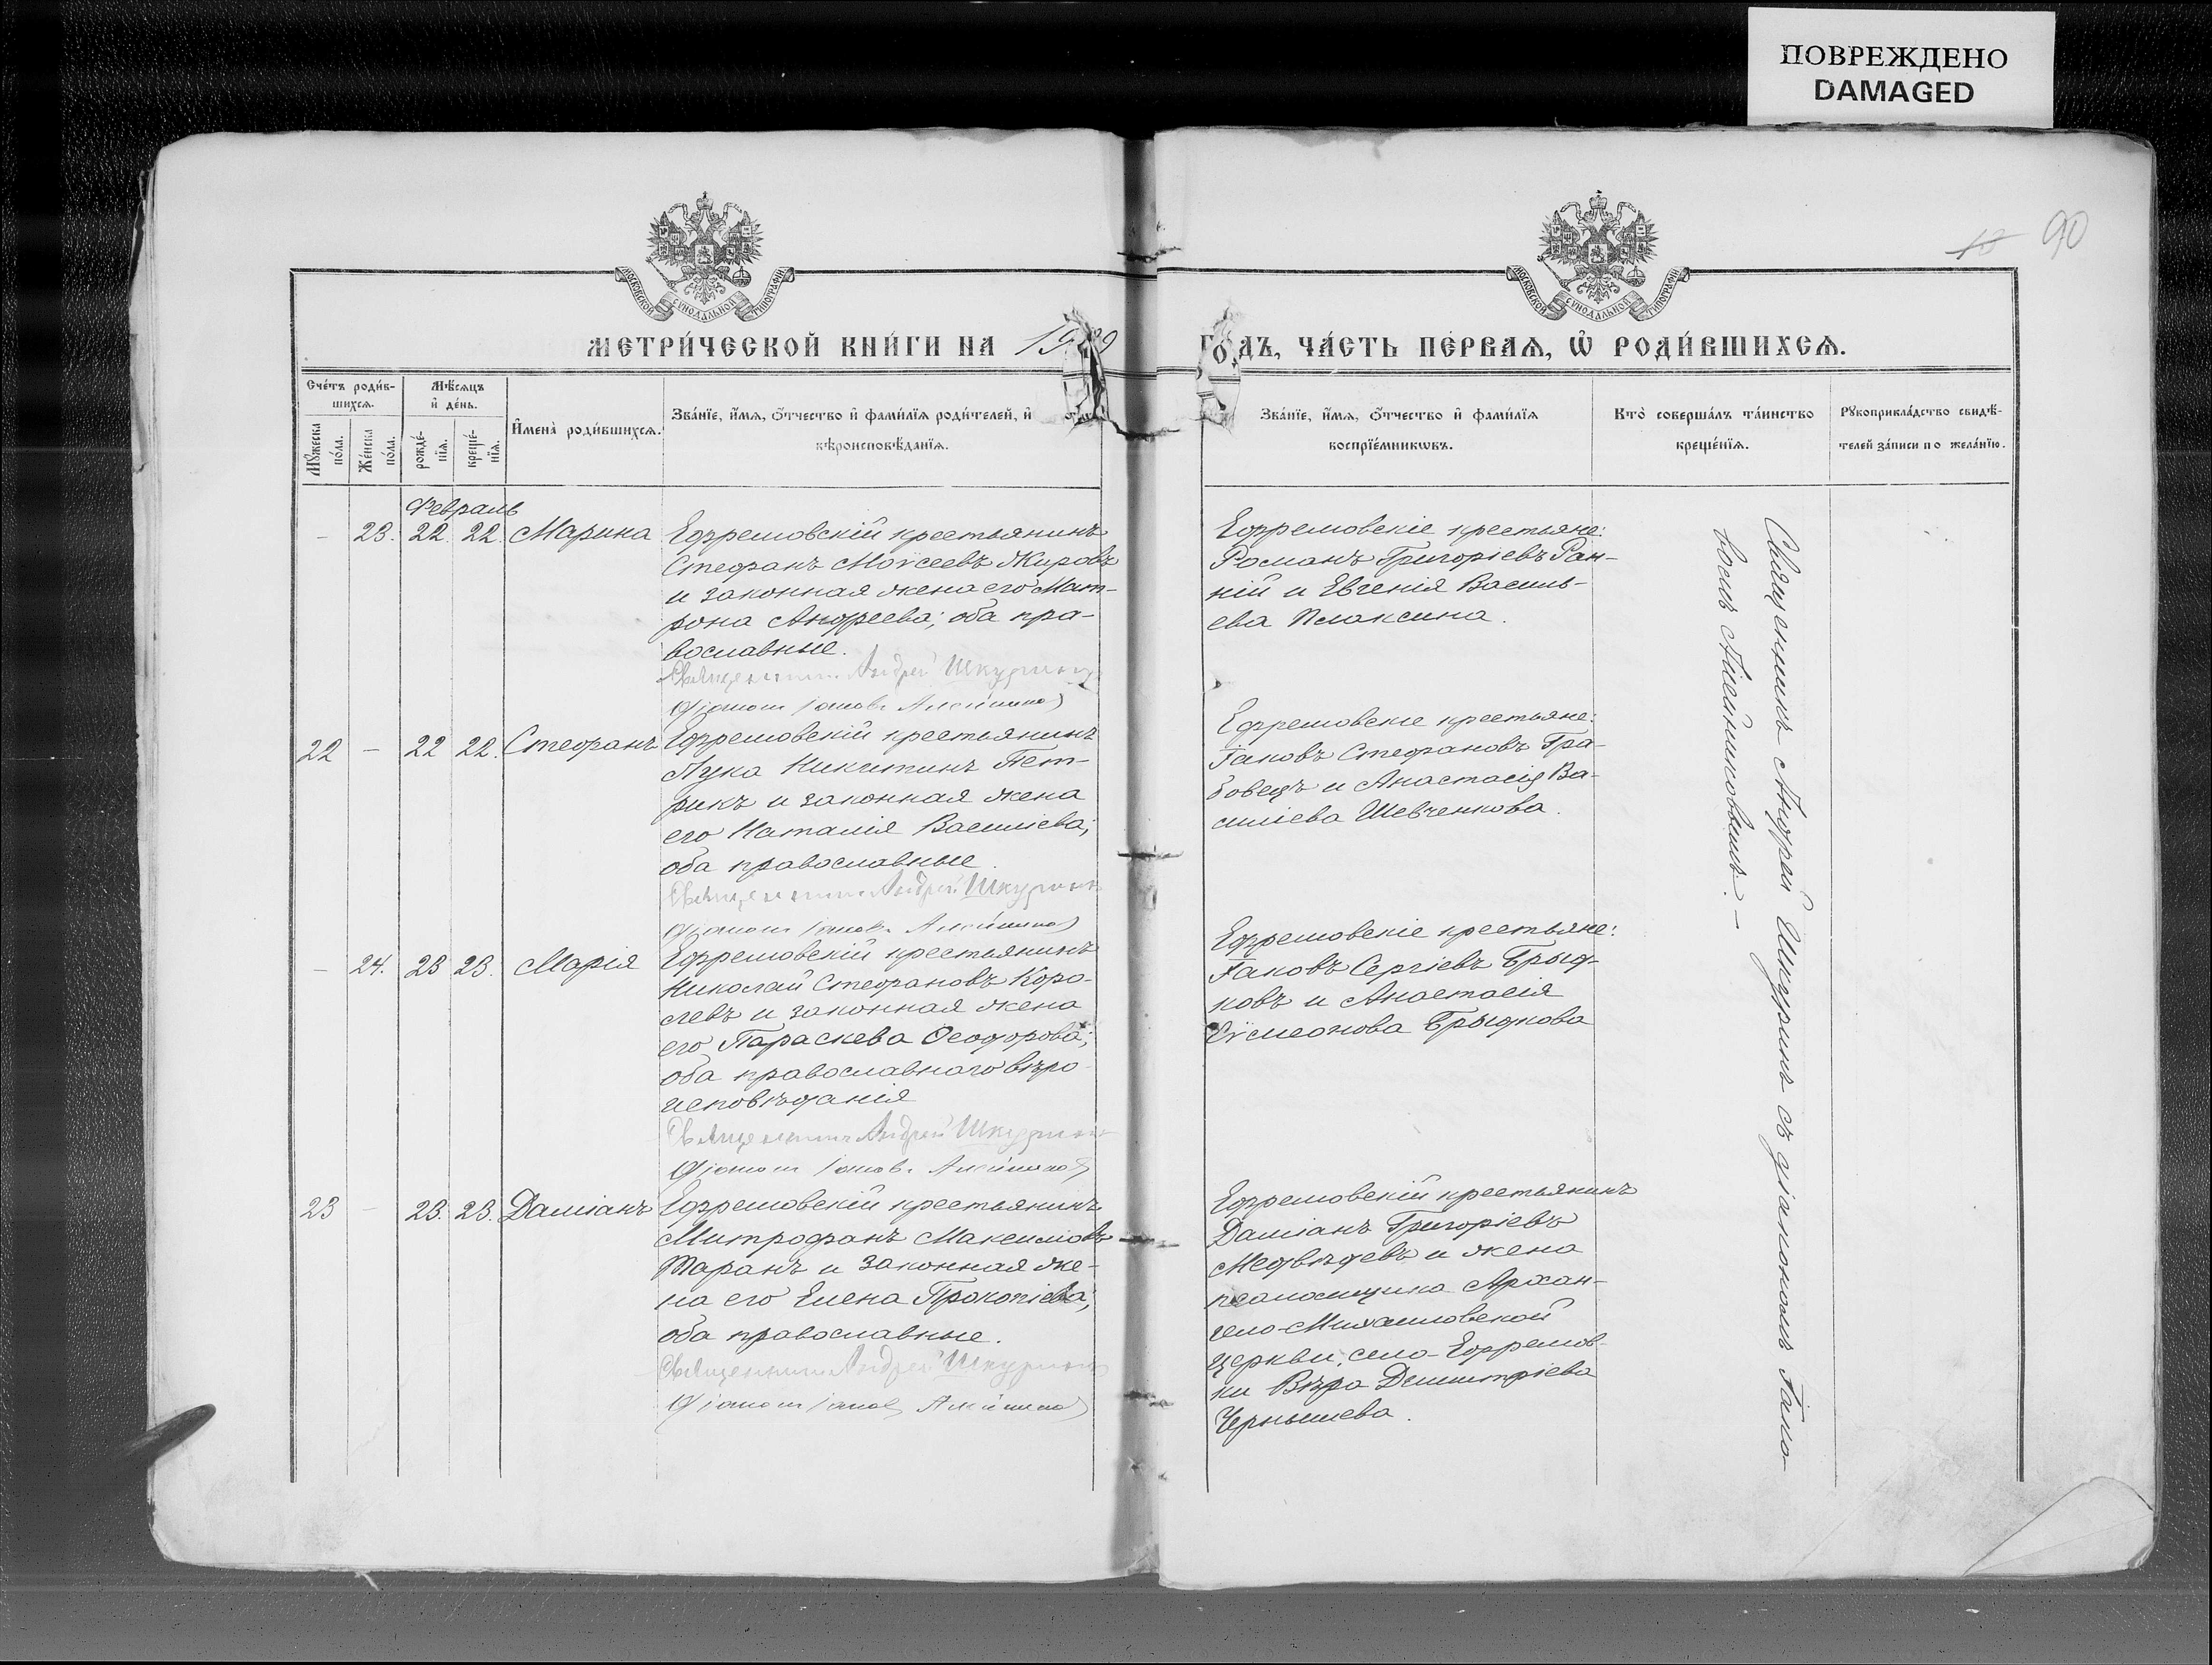 ПОВРЕЖДЕНО
DAMAGED
90
МОСКОВСКОЙ СѴНОДАЛЬНОЙ ТИПОГРАФІИ
МОСКОВСКОЙ СѴНОДАЛЬНОЙ ТИПОГРАФІИ
МЕТРИ́ЧЕСКОЙ КНИ́ГИ НА
ГО́ДЪ, ЧА́СТЬ ПЕ́РВАЯ, Ѡ РОДИ́ВШИХСЯ.
Сче́тъ роди́в-
шихся.
Мѣ́сяцъ
и де́нь.
Мꙋ́жеска
по́ла.
Же́нска
по́ла.
рожде́-
нїя.
креще́-
нїя.
Имена̀ роди́вшихся.
Зва́нїе, и́мя, ѻ́тчество и фами́лїя роди́телей, и
вѣроисповѣ́данїя.
Зва́нїе, и́мя, ѻ́тчество и фами́лїя
воспрїе́мникѡвъ.
Кто̀ соверша́лъ та́инство
креще́нїя.
Рꙋкоприкла́дство свидѣ́-
телей за́писи по жела́нїю.
Февраль
- 23. 22 22. Марина
Ефремовскій крестьянинъ
Стефанъ Моѵсеевъ Жировъ
и законная жена его Мат-
рона Андреева; оба пра-
вославные.
Священник Андрей Шкурин
Діакон Іаков Алейников
Ефремовскіе крестьяне:
Романъ Григоріевъ Ран-
ній и Евгенія Василь-
ева Плаксина.
22 - 22 22. Стефанъ
Ефремовскій крестьянинъ
Лука Никитинъ Пет-
рикъ и законная жена
его Наталія Василіева;
оба православные.
Священник Андрей Шкурин
Діакон Іаков Алейников
Ефремовскіе крестьяне:
Іаковъ Стефановъ Гра-
бовецъ и Анастасія Ва-
силіева Шевченкова.
- 24. 23 23. Марія
Ефремовскій крестьянинъ
Николай Стефановъ Коро-
левъ и законная жена
его Параскева Ѳеодорова;
оба православнаго вѣро-
исповѣданія
Священник Андрей Шкурин
Діакон Іаков Алейников
Ефремовскіе крестьяне:
Іаковъ Сергіевъ Брыд-
ковъ и Анастасія
Сѵмеонова Брыдкова
23 - 23. 23. Даміанъ
Ефремовскій крестьянинъ
Митрофанъ Максимовъ
Таранъ и законная же-
на его Елена Прокопіева;
оба православные.
Священник Андрей Шкурин
Діакон Іаков Алейников
Ефремовскій крестьянинъ
Даміанъ Григоріевъ
Медвѣдевъ и жена
псаломщика Архан-
гело-Михаиловской
церкви, село-Ефремов-
ки Вѣра Димитріева
Чернышева.
Священникъ Андрей Шкуринъ съ діакономъ Іако-
вомъ Алейниковымъ. —